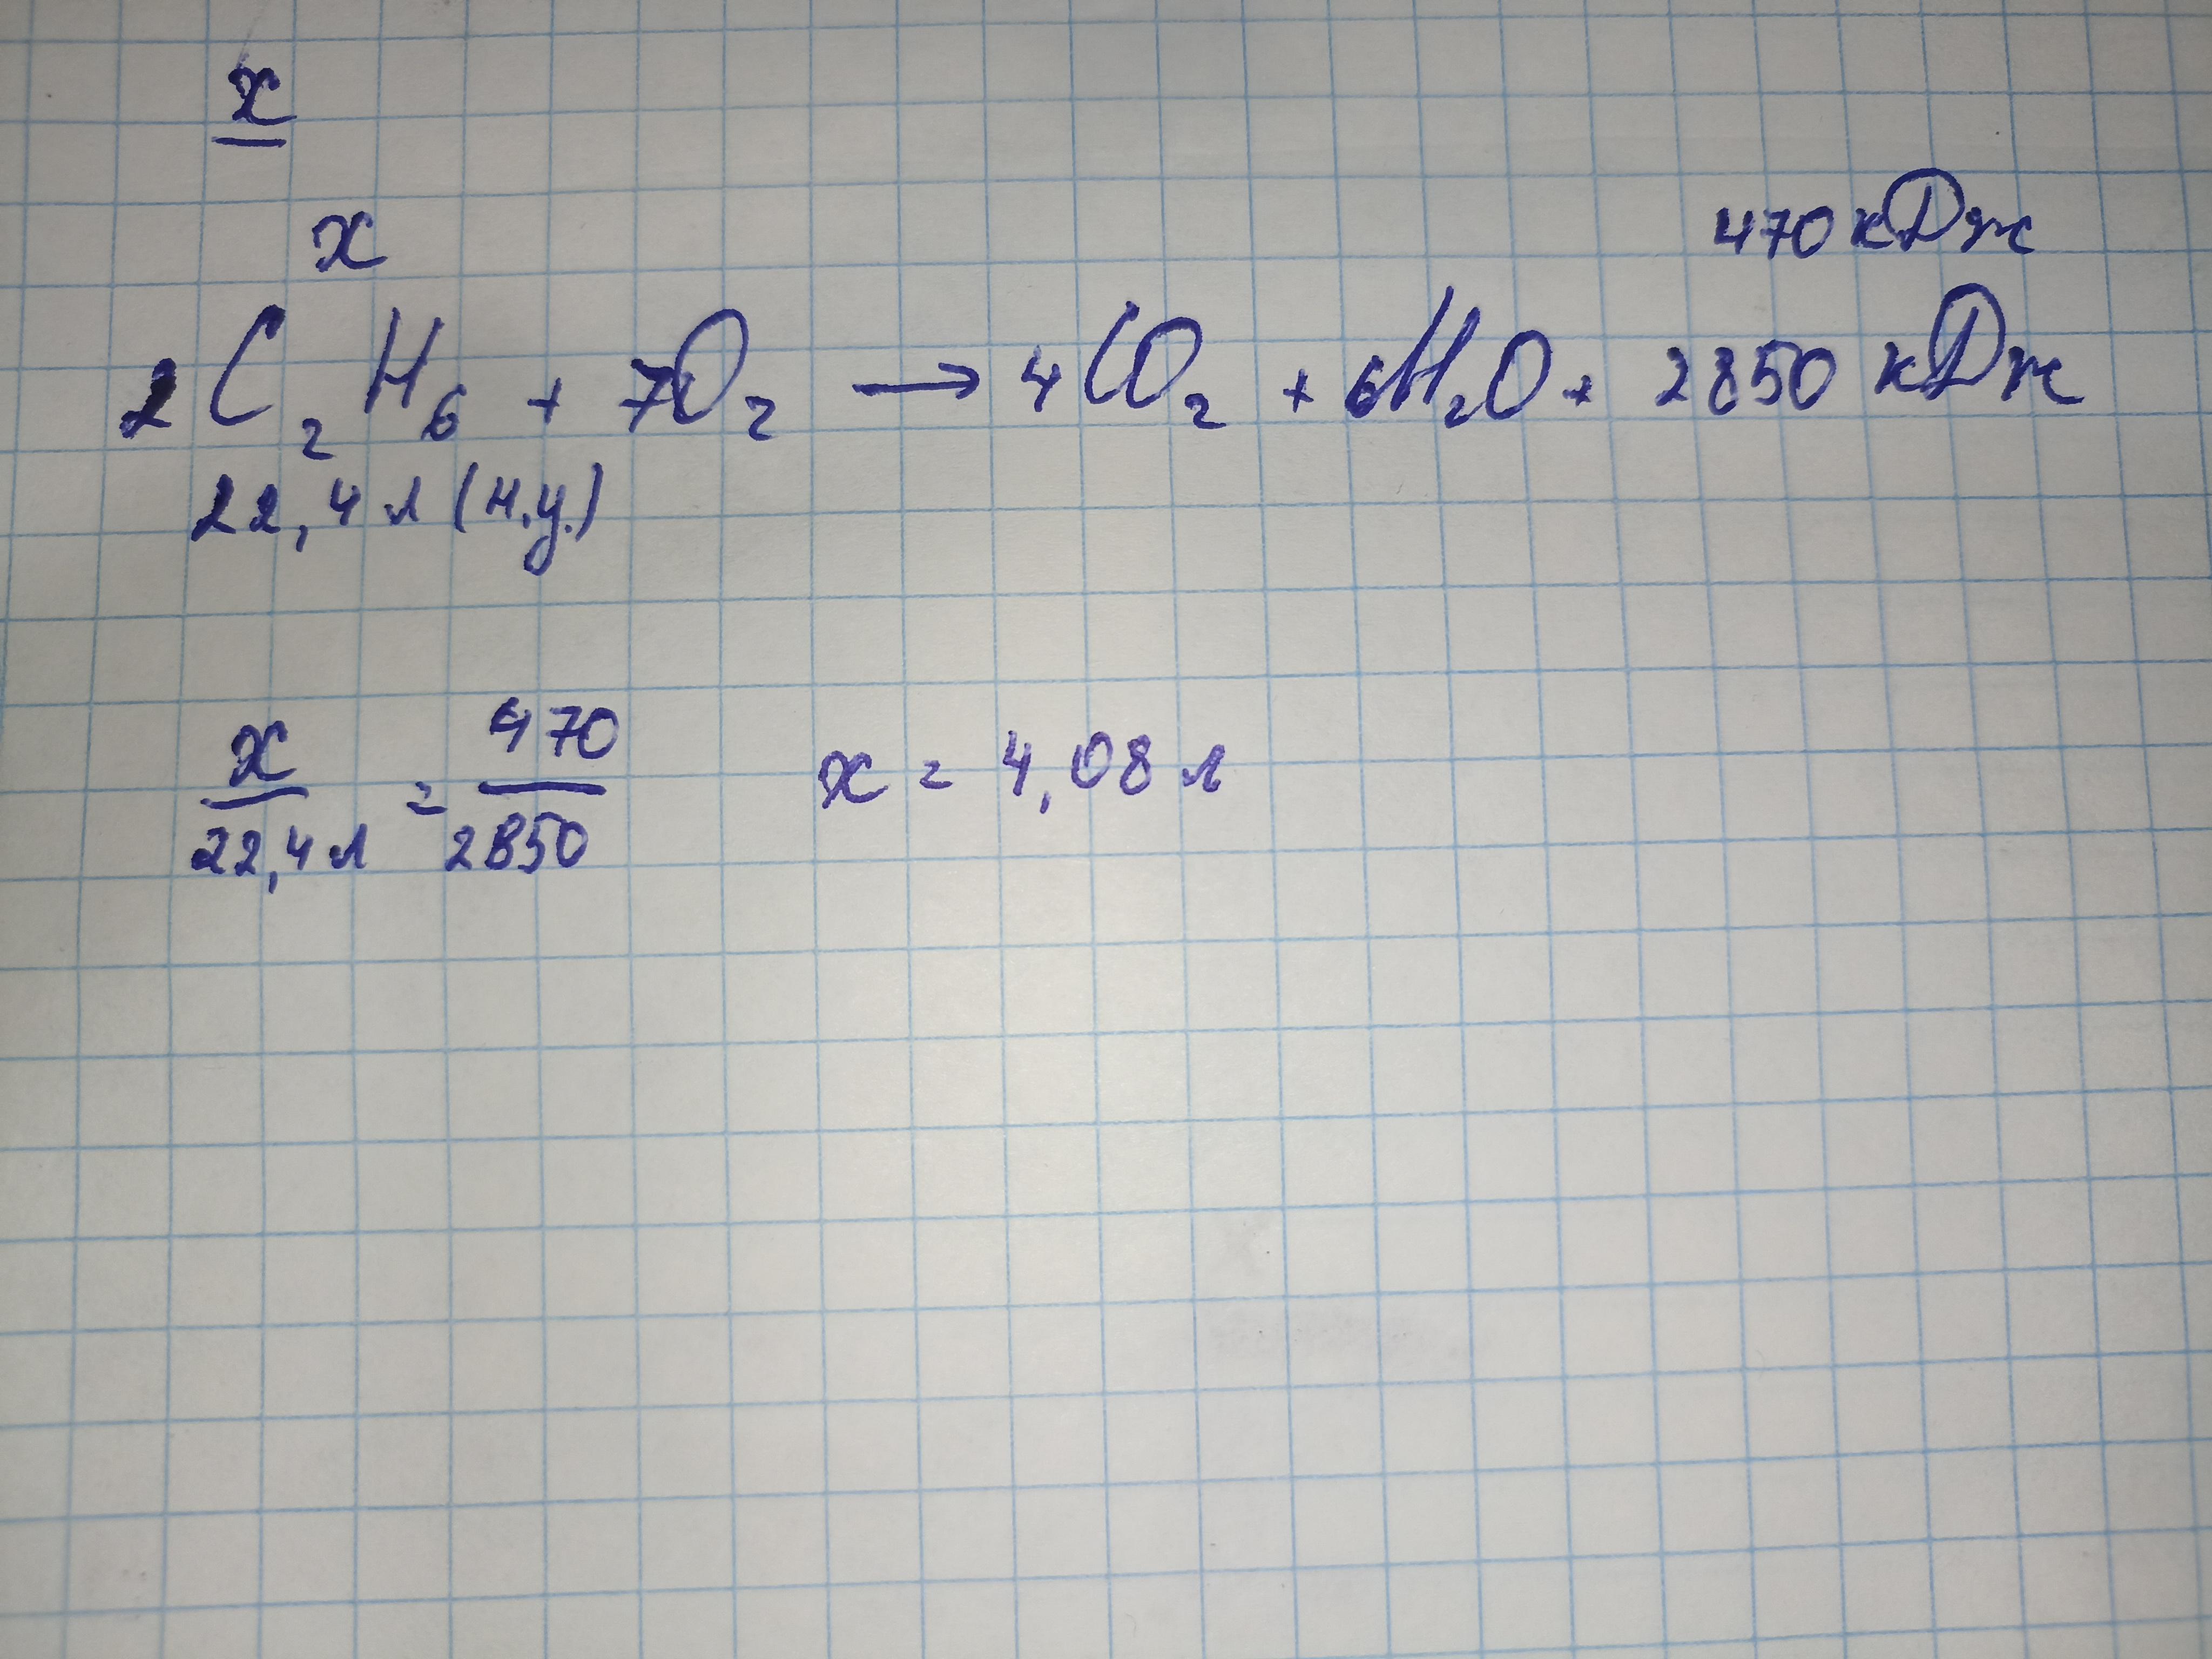 x
x 470 кДж
2C₂H₆ + 7O₂ → 4CO₂ + 6H₂O + 2850 кДж
22,4 л (н.у.)
x/22,4 л = 470/2850 x = 4,08 л